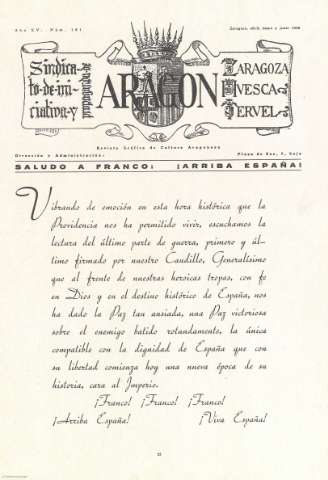 Año XV. Núm. 161
Zaragoza, abril, mayo y junio 1939
Sindica-
to·de·ini-
ciativa·y
propaganda
ARAGON
ZARAGOZA
HVESCA
TERVEL
Revista Gráfica de Cultura Aragonesa
Dirección y Administración:
Plaza de Sas, 7, bajo
SALUDO A FRANCO: ¡ARRIBA ESPAÑA!
Vibrando de emoción en esta hora histórica que la
Providencia nos ha permitido vivir, escuchamos la
lectura del último parte de guerra, primero y úl-
timo firmado por nuestro Caudillo, Generalísimo
que al frente de nuestras heroicas tropas, con fe
en Dios y en el destino histórico de España, nos
ha dado la Paz tan ansiada, una Paz victoriosa
sobre el enemigo batido rotundamente, la única
compatible con la dignidad de España que con
su libertad comienza hoy una nueva época de su
historia, cara al Imperio.
¡Franco! ¡Franco! ¡Franco!
¡Arriba España! ¡Viva España!